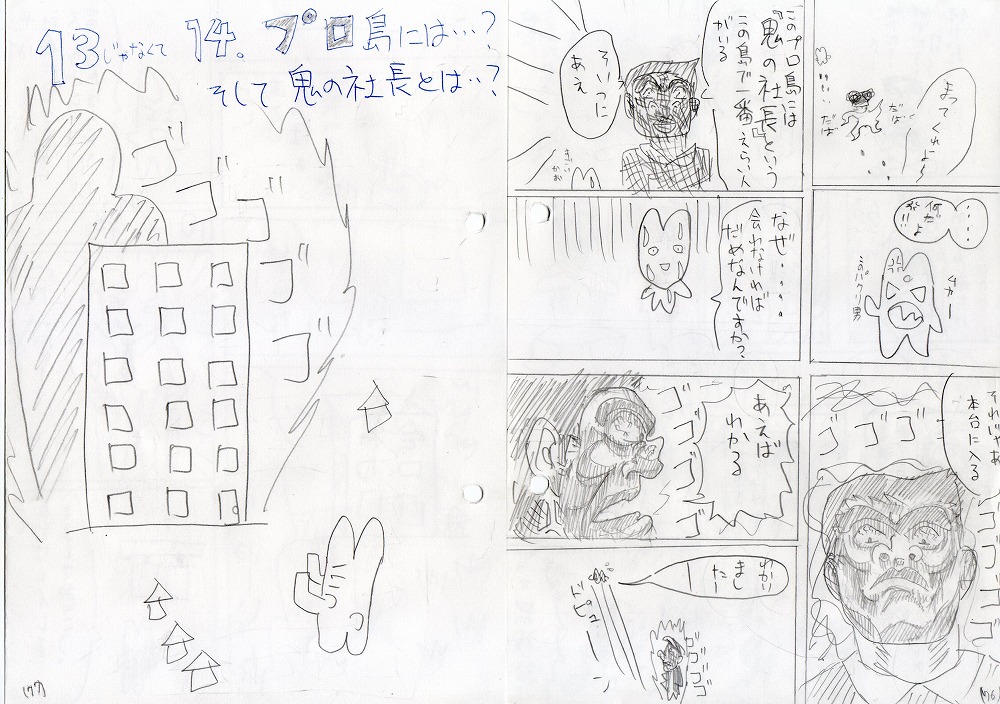 まってくれよ〜
だば‥
だば‥
‥‥
何だよ
ムカー
このパクリ男
それじゃあ
本台に入る
ゴゴゴ
ゴゴゴゴ
(76)
このプロ島には
『鬼の社長』という
この島で一番えらい人
がいる
そいつに
あえ
なぜ・・・・
会わなければ
だめなんですか?
あえば
わかる
ゴゴゴゴ
わかり
まし
たー
ドピューン
ゴゴゴゴ
13じゃなくて 14. プロ島には…?
そして 鬼の社長とは‥?
ゴゴゴゴゴ
(77)